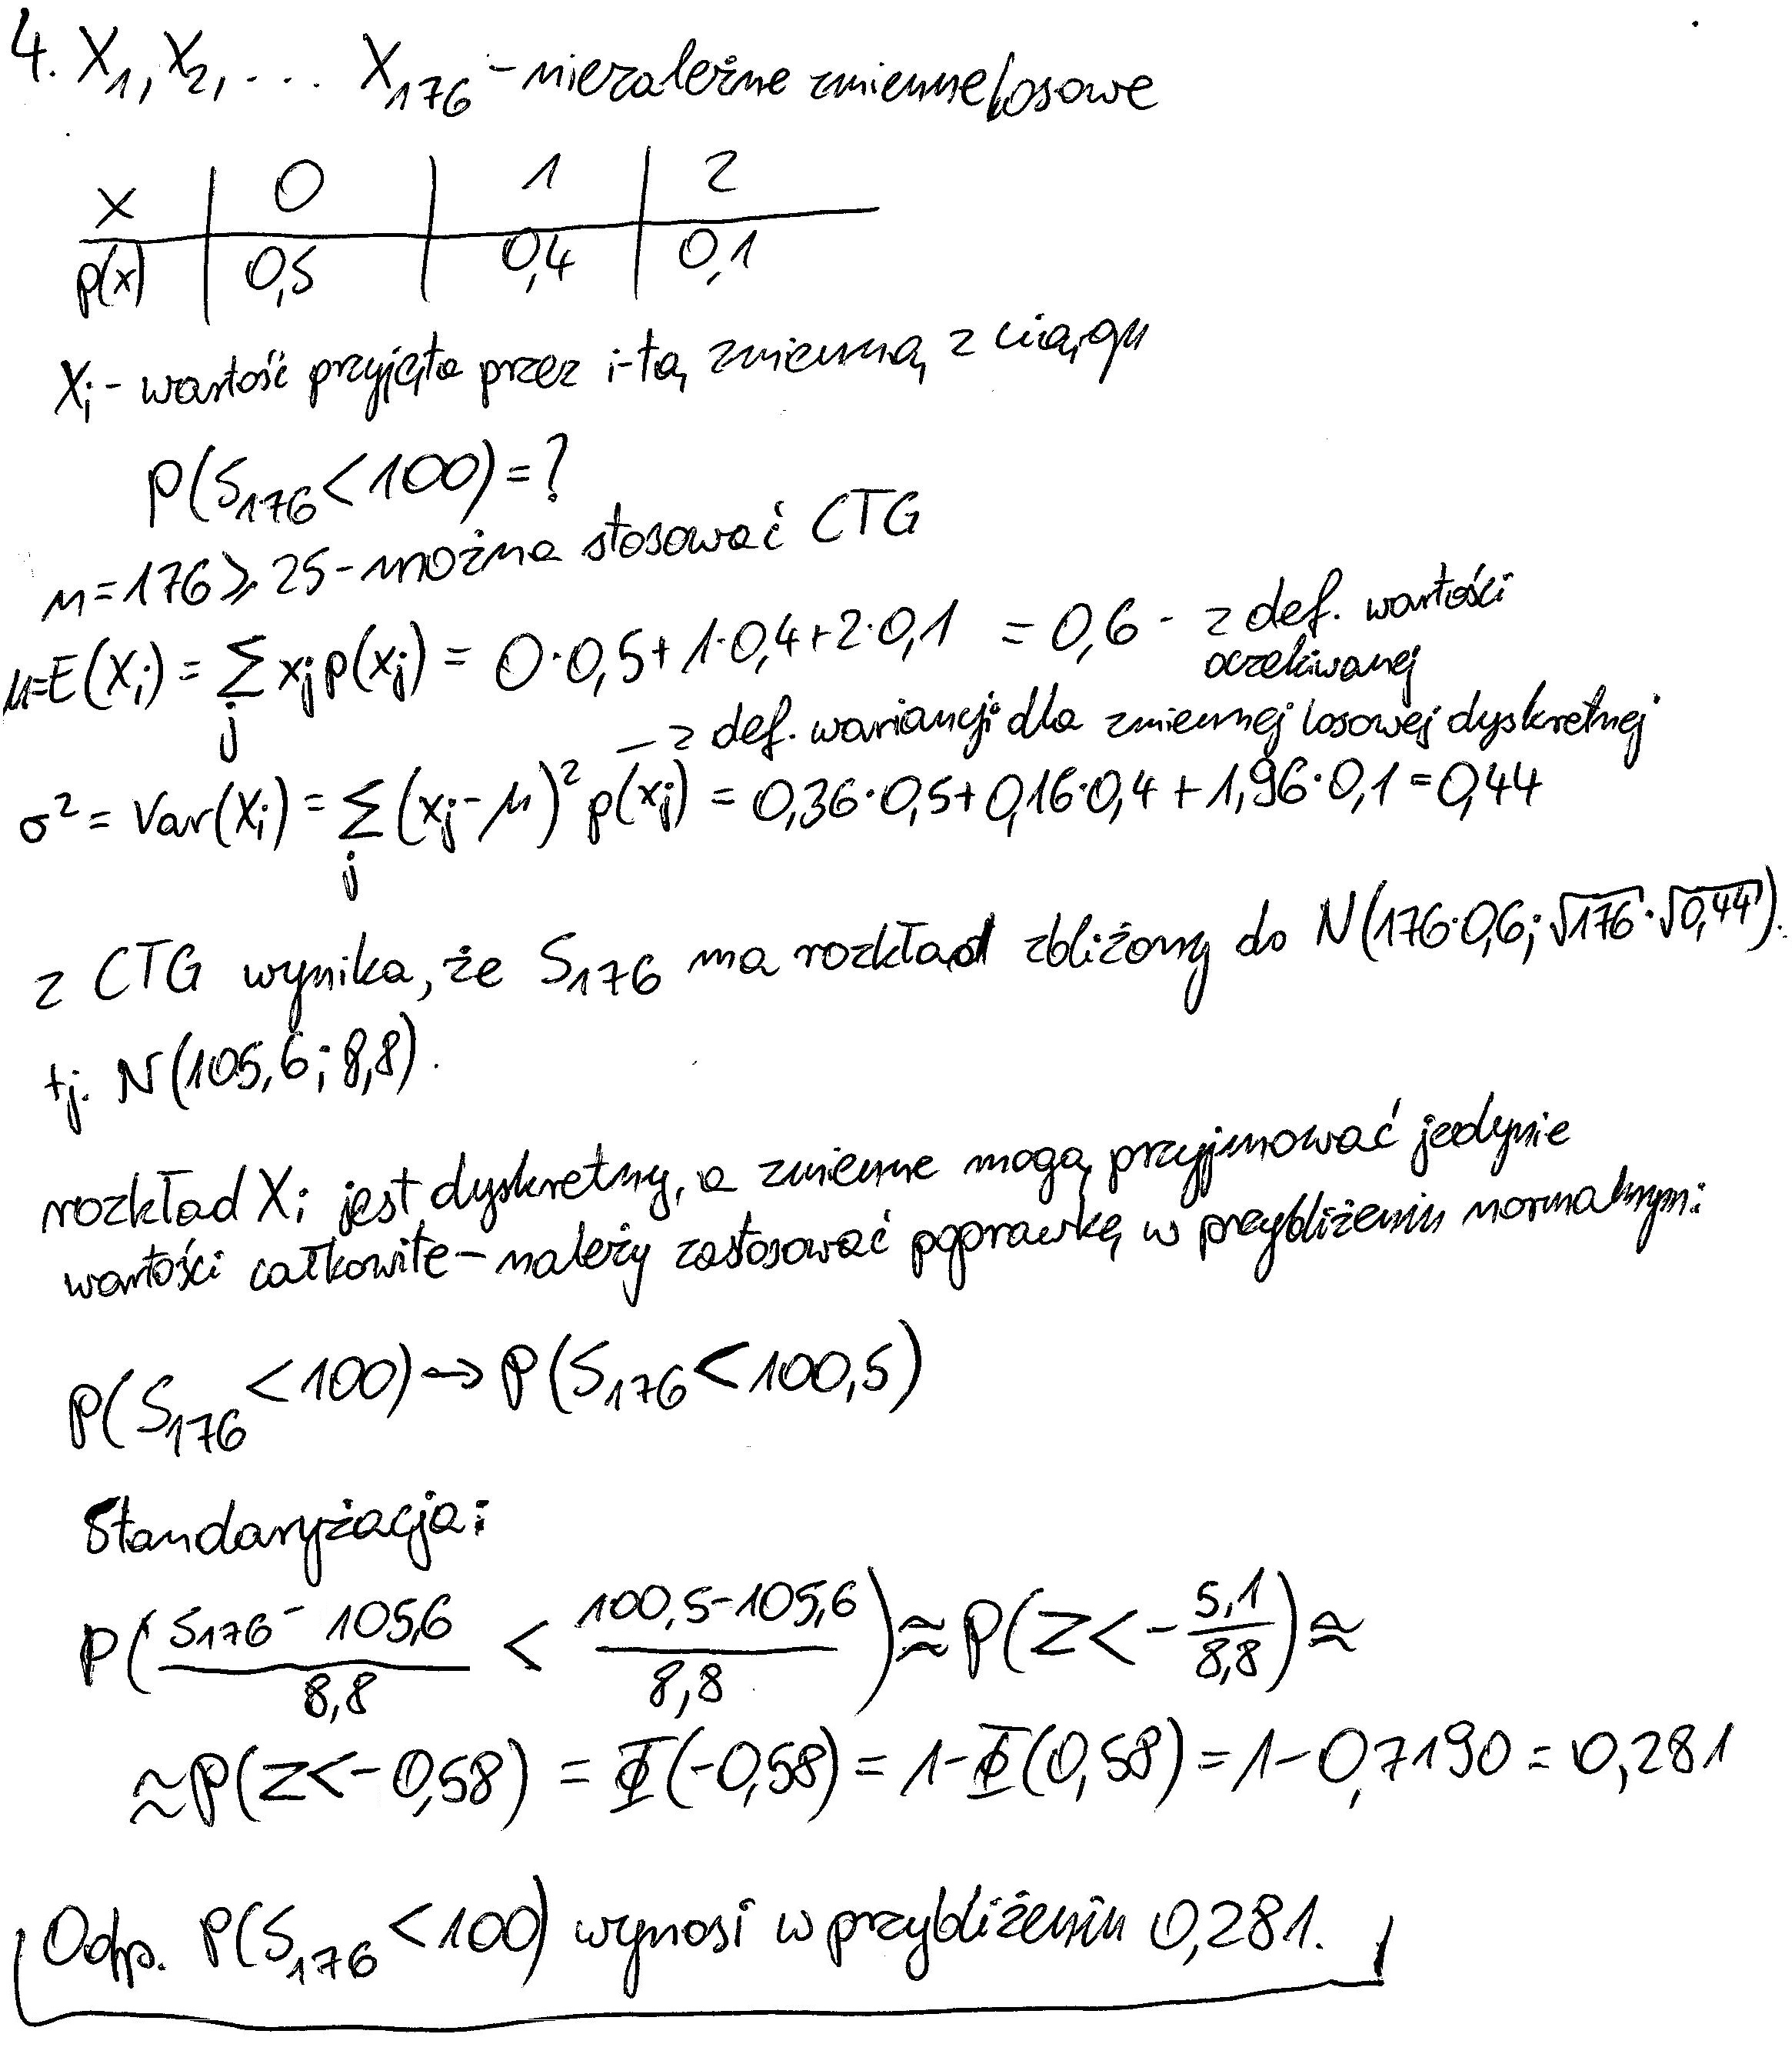 4. X₁, X₂, ... X₁₇₆ - niezależne zmienne losowe
x | 0 | 1 | 2
p(x) | 0,5 | 0,4 | 0,1
Xᵢ - wartość przyjęta przez i-tą zmienną z ciągu
P(S₁₇₆ < 100) = ?
n = 176 ⩾ 25 - można stosować CTG
μ = E(Xᵢ) = ∑ⱼ xⱼ p(xⱼ) = 0·0,5 + 1·0,4 + 2·0,1 = 0,6 - z def. wartości
oczekiwanej
— z def. wariancji dla zmiennej losowej dyskretnej
σ² = Var(Xᵢ) = ∑ⱼ (xⱼ - μ)² p(xⱼ) = 0,36·0,5 + 0,16·0,4 + 1,96·0,1 = 0,44
z CTG wynika, że S₁₇₆ ma rozkład zbliżony do N(176·0,6; √176·√0,44).
tj. N(105,6; 8,8).
rozkład Xᵢ jest dyskretny, a zmienne mogą przyjmować jedynie
wartości całkowite - należy zastosować poprawkę w przybliżeniu normalnym:
P(S₁₇₆ < 100) → P(S₁₇₆ < 100,5)
Standaryżacja:
P( (S₁₇₆ - 105,6)/8,8 < (100,5 - 105,6)/8,8 ) ≈ P(Z < - 5,1/8,8) ≈
≈ P(Z < - 0,58) = Φ(-0,58) = 1 - Φ(0,58) = 1 - 0,7190 = 0,281
Odp. P(S₁₇₆ < 100) wynosi w przybliżeniu 0,281.